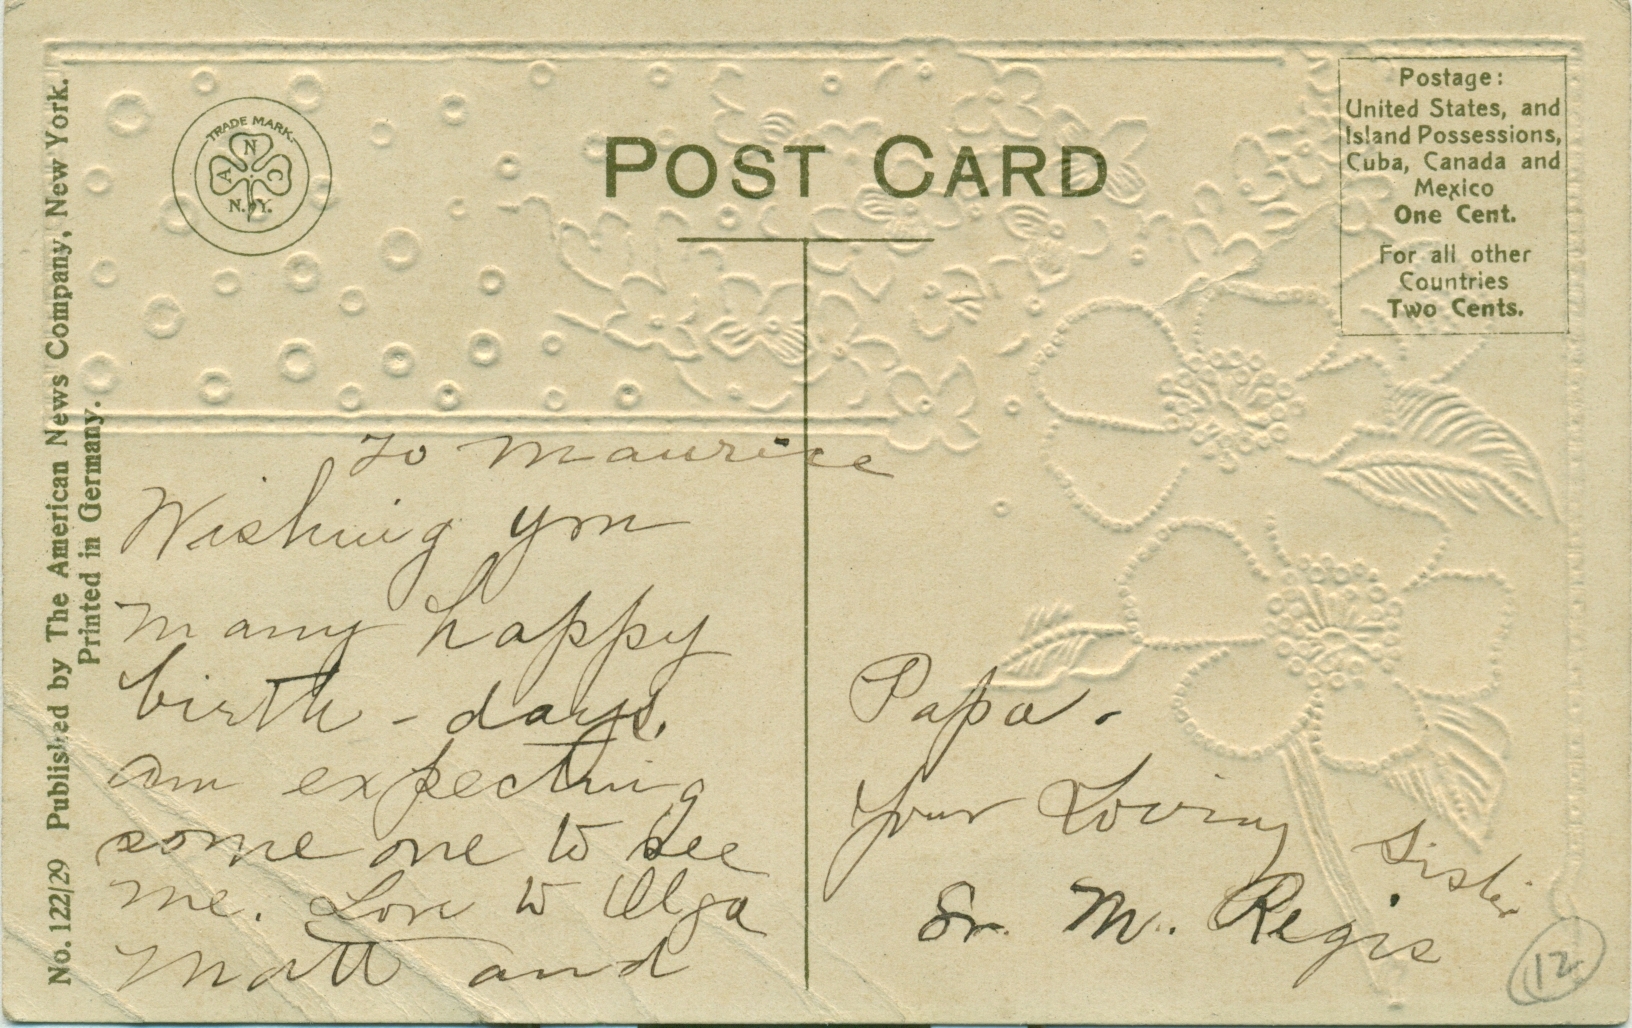 No. 122/29 Published by The American News Company, New York.
Printed in Germany.
TRADE MARK.
A N C
N.Y.
POST CARD
Postage:
United States, and
Island Possessions,
Cuba, Canada and
Mexico
One Cent.
For all other
Countries
Two Cents.
To Maurice
Wishing you
many happy
birth-days.
Am expecting
some one to see
me. Love to Olga
Matt and
Papa.
Your Loving Sister
Sr. M. Regis
12